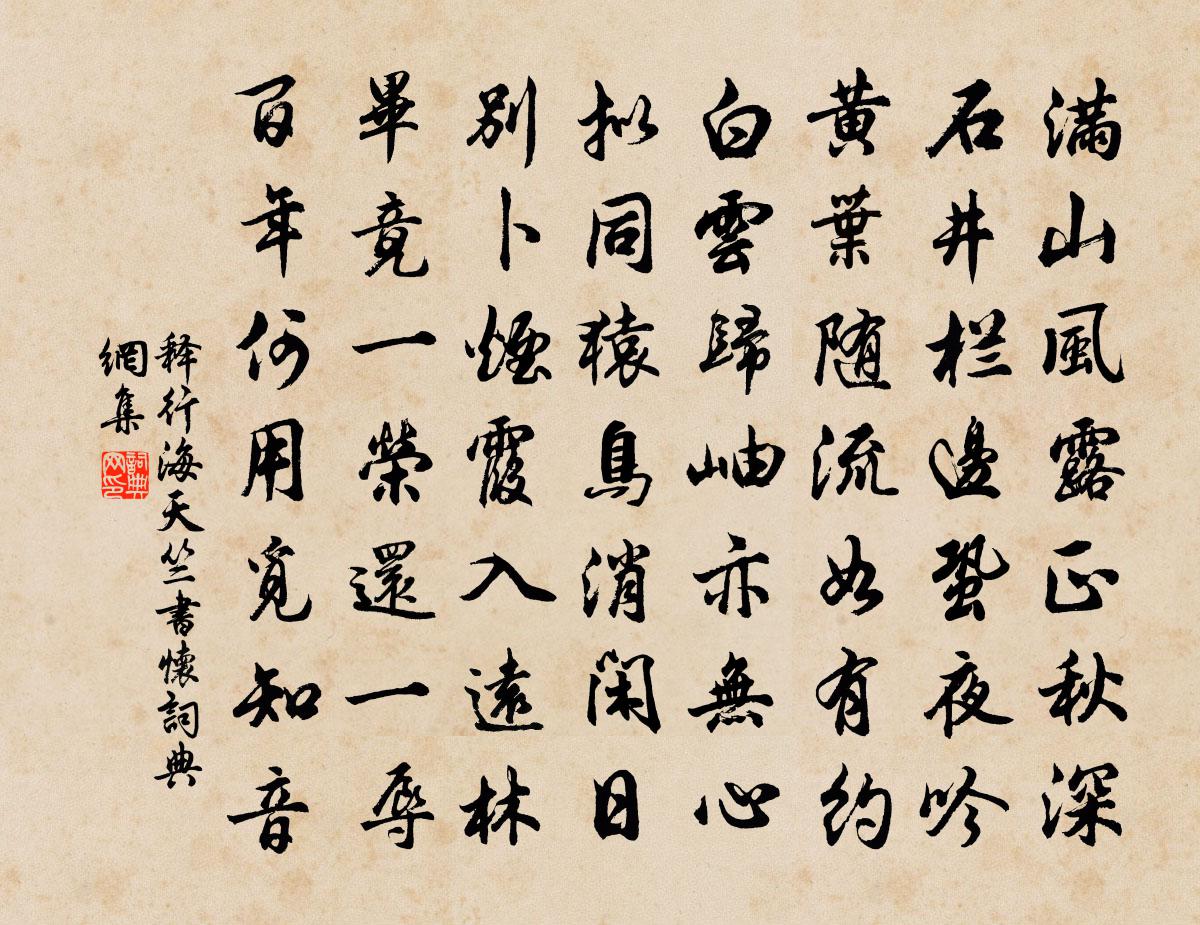 滿山風露正秋深
石井栏邊蛩夜吟
黃葉随流如有約
白雲歸岫亦無心
拟同猿鳥消閑日
別卜煙霞入遠林
畢竟一榮還一辱
百年何用覓知音
释行海天竺書懷詞典
網集
詞典网印